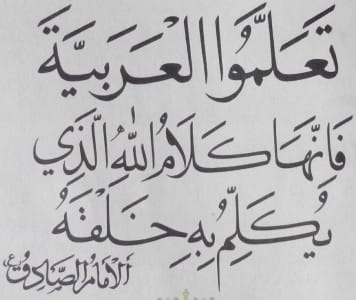 تَعَلَّمُوا الْعَرَبِيَّةَ
فَإِنَّهَا كَلَامُ اللّٰهِ الَّذِي
يُكَلِّمُ بِهِ خَلْقَهُ
الإمَامُ الصَّادِقُ ع